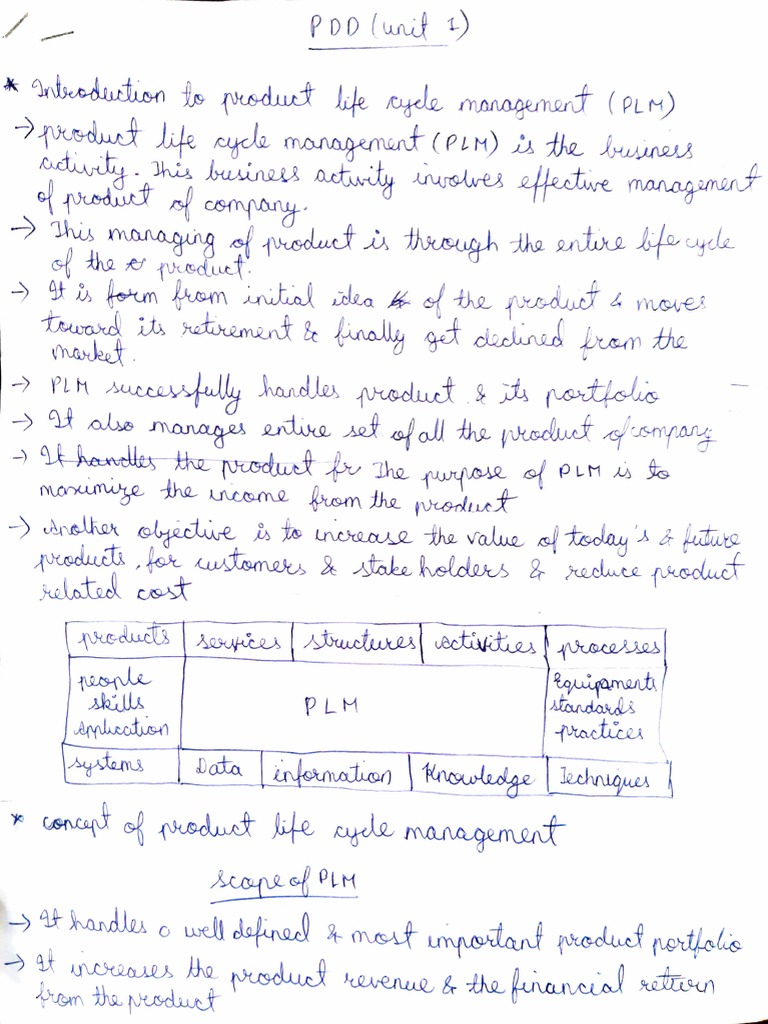 PDD (unit 1)
* Introduction to product life cycle management (PLM)
→ product life cycle management (PLM) is the business
activity. This business activity involves effective management
of product of company.
→ This managing of product is through the entire life cycle
of the product.
→ It is form from initial idea of the product & moves
toward its retirement & finally get declined from the
market.
→ PLM successfully handles product & its portfolio
→ It also manages entire set of all the product of company
→ It handles the product fr The purpose of PLM is to
maximize the income from the product
→ Another objective is to increase the value of today's & future
products, for customers & stake holders & reduce product
related cost
products services structures activities processes
people
skills
Application
PLM
Equipments
standards
practices
systems Data information Knowledge Techniques
* concept of product life cycle management
scope of PLM
→ It handles a well defined & most important product portfolio
→ It increases the product revenue & the financial return
from the product